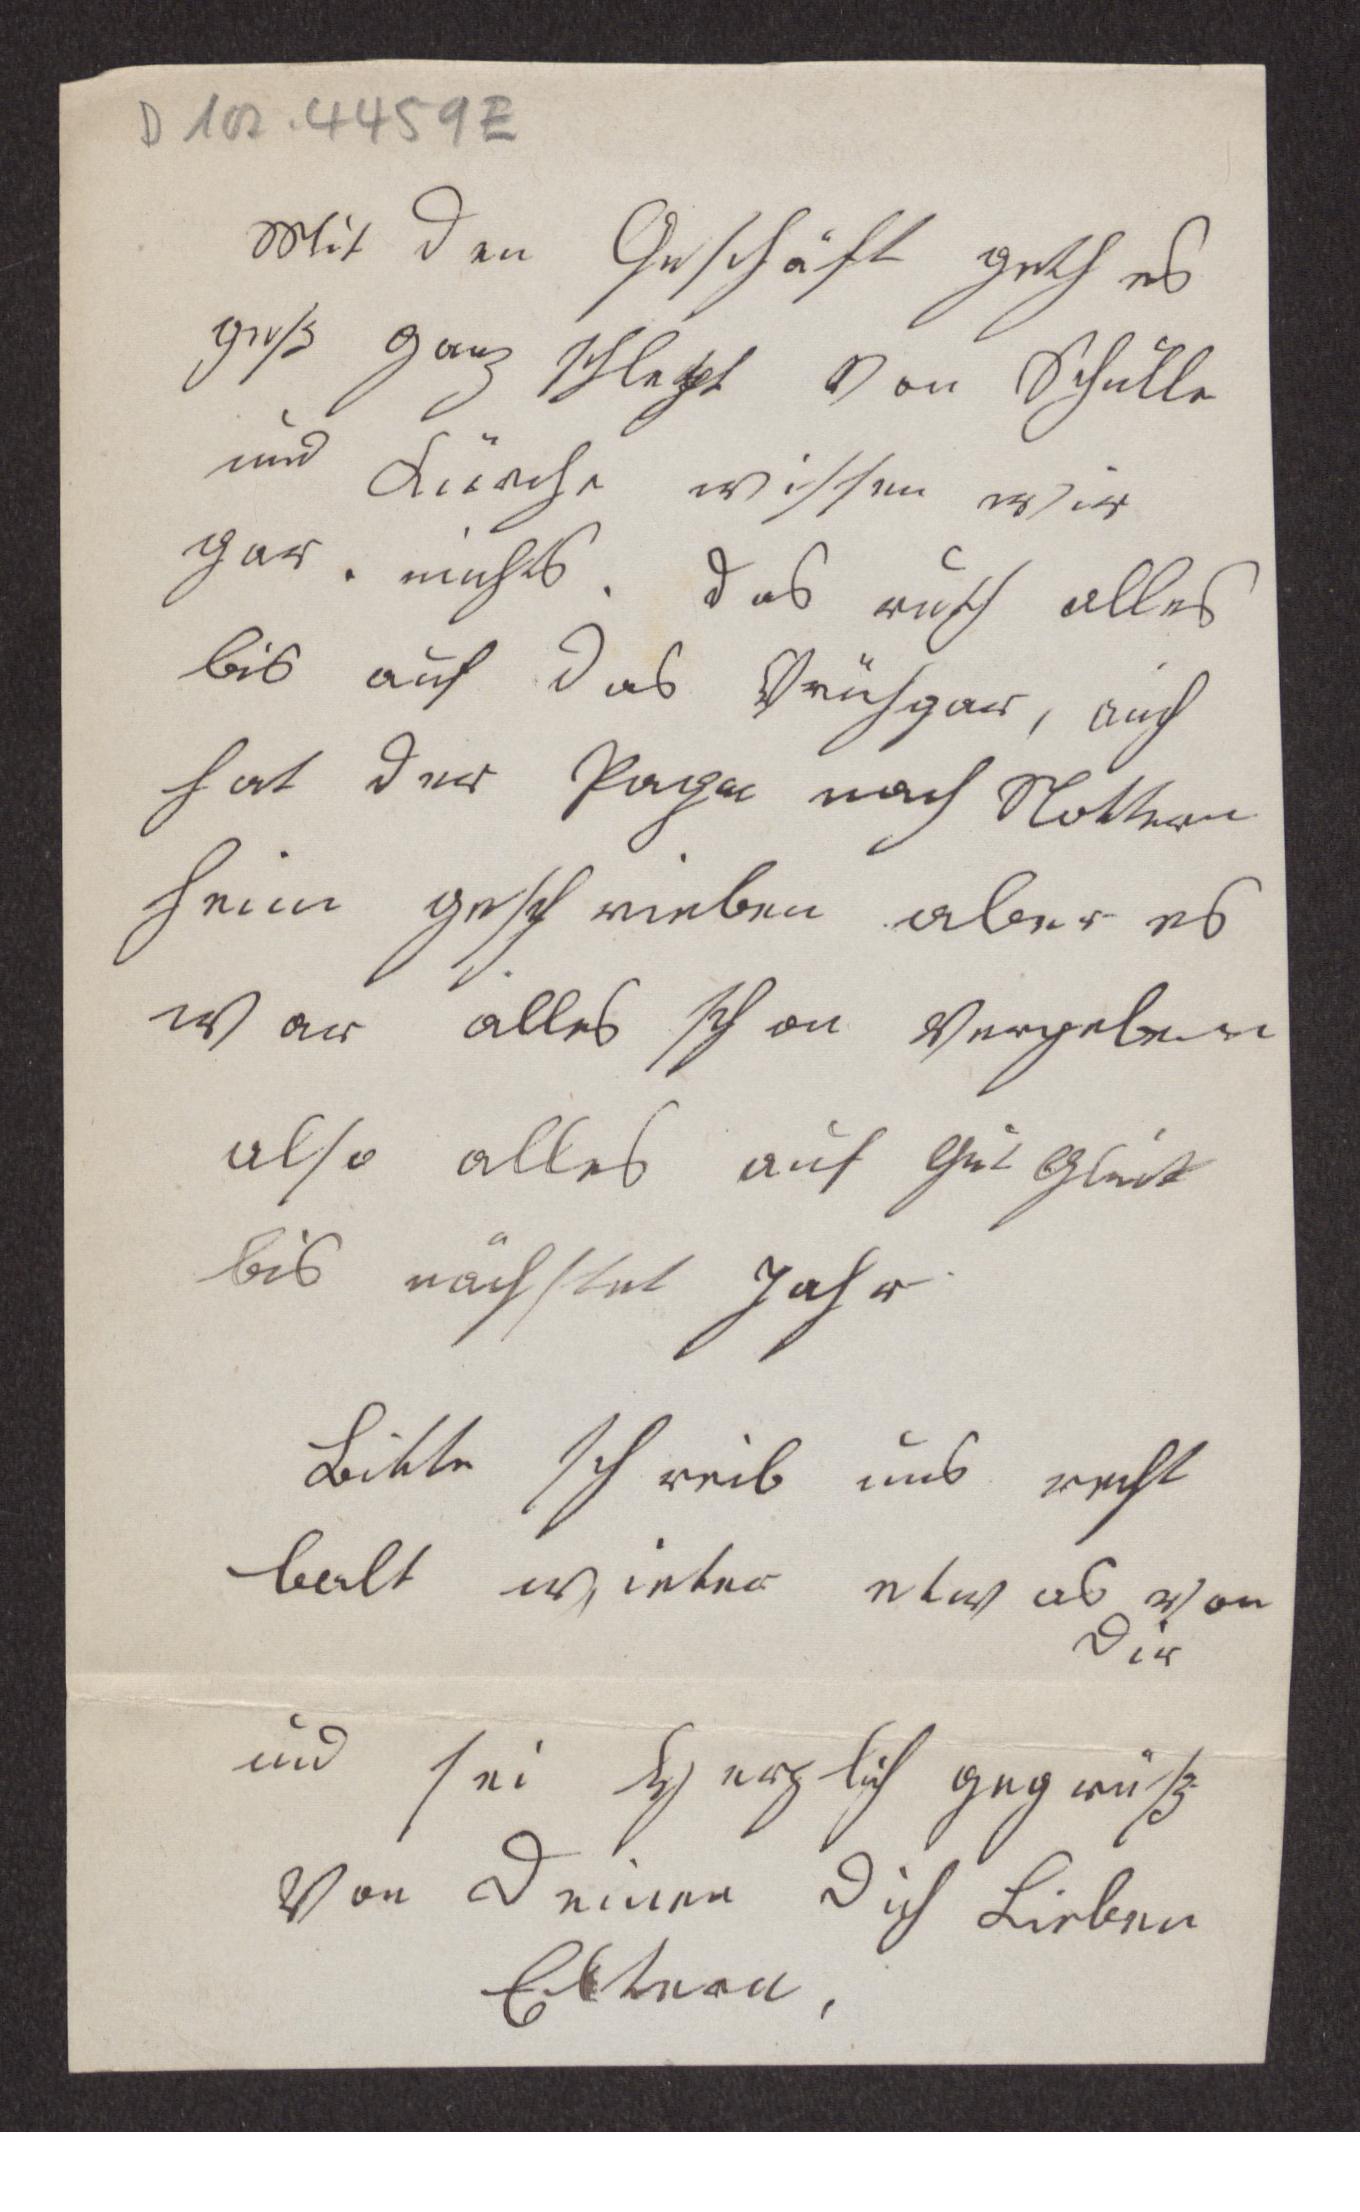 D 102.4459E
Mit den Geschäft geth es
ganz schlecht von Schulle
und Kürche wissen wir
gar. nichts. das ruth alles
bis auf das Vrühgar, auch
hat der Papa nach Nottern
heim geschrieben aber es
war alles schon vergeben
also alles auf gut Glück
bis nächstet Jahr
Bitte schreib uns recht
balt wieter etwas von
Dir
und sei Herzlich gegrüß
von Deinen Dich Lieben
Eltern,